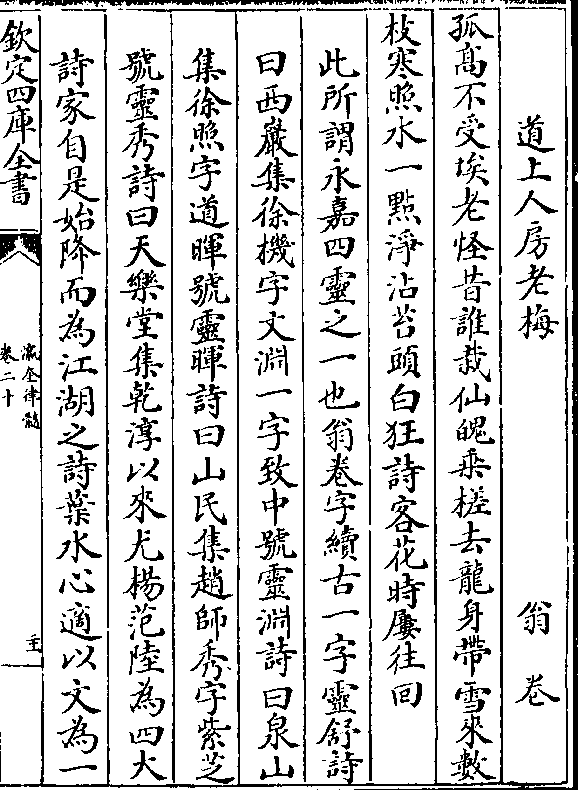 道上人房老梅　翁卷
孤髙不受埃老怪昔誰栽仙魄乗槎去龍身帶雪來數
枝寒照水一㸃淨沾苔頭白狂詩客花時屢往回
此所謂永嘉四靈之一也翁卷字續古一字靈舒詩
曰西巖集徐機字文淵一字致中號靈淵詩曰泉山
集徐照字道暉號靈暉詩曰山民集趙師秀字紫芝
號靈秀詩曰天樂堂集乾淳以來尤楊范陸為四大
詩家自是始降而為江湖之詩葉水心適以文為一
欽定四庫全書
瀛奎律髓
卷二十